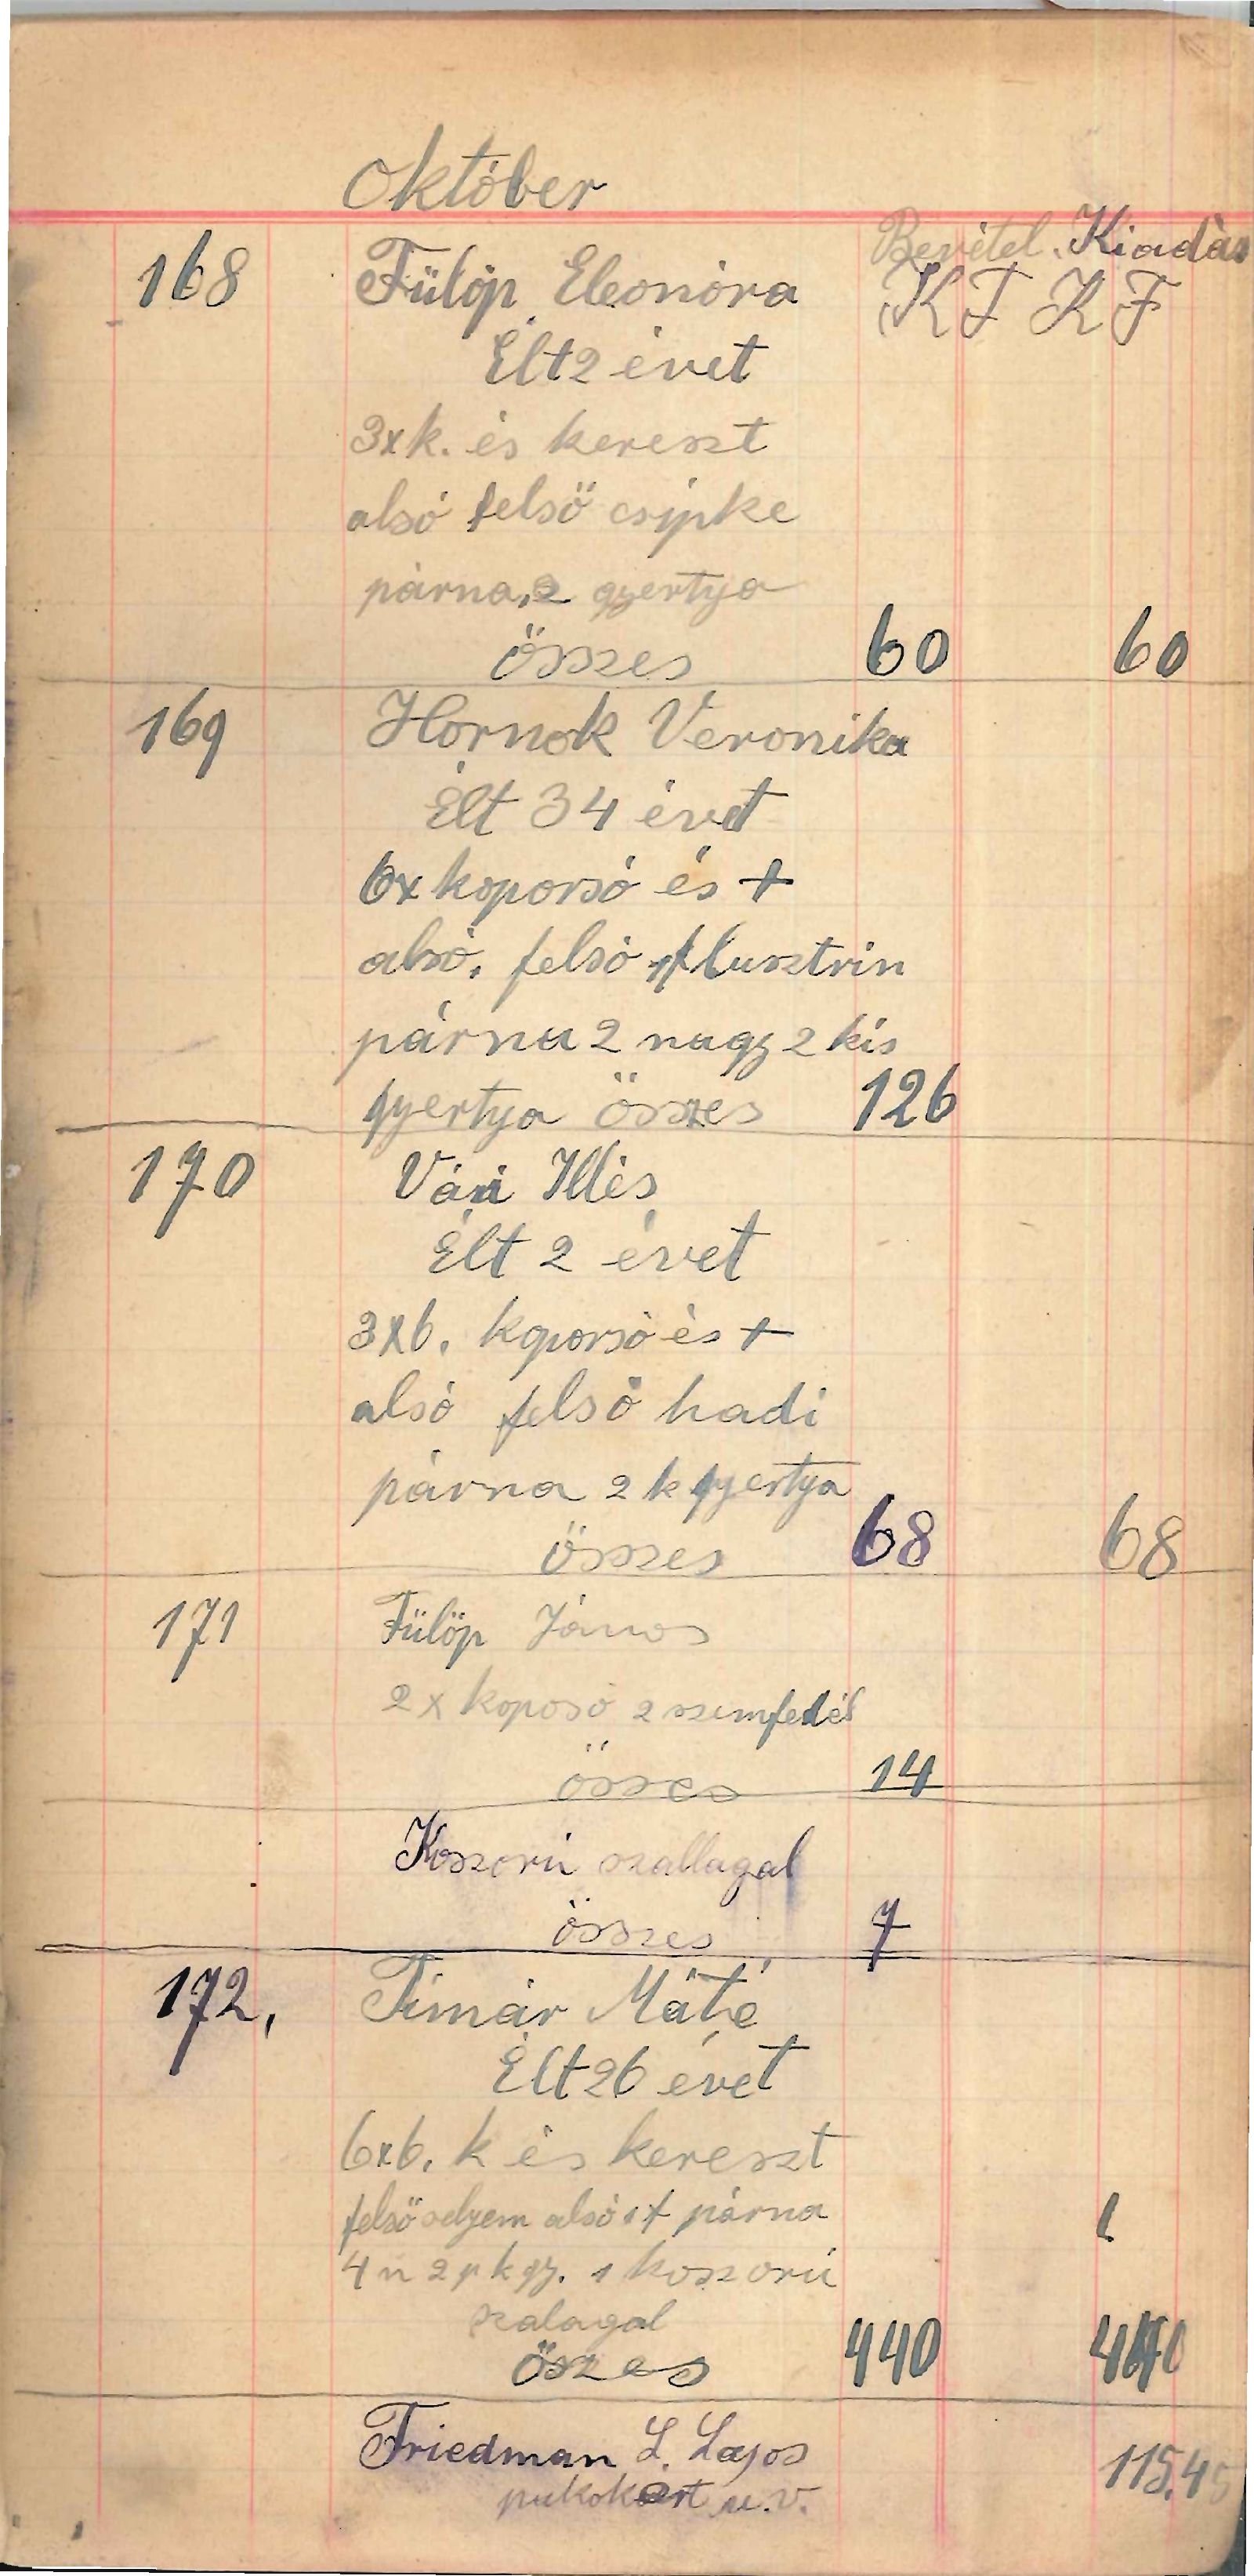 Október
Bevétel. Kiadás
168 Fülöp Eleonóra K F K F
Élt 2 évet
3xk. és kereszt
alsó felső csipke
párna, 2 gyertya
összes 60 60
169 Hornok Veronika
Élt 34 évet
6x koporsó és +
alsó, felső lusztrin
párna 2 nagy 2 kis
gyertya összes 126
170 Vári Illés
Élt 2 évet
3x6. koporsó és +
alsó felső hadi
párna 2 k gyertya
összes 68 68
171 Fülöp János
2x koposó 2 szemfedél
össes 14
Koszorú szallagal
összes 7
172, Timár Máté
Élt 26 évet
6x6. k és kereszt
felső selyem alsó párna
4 n 2 p k gy. 1 koszorú
szalagal
öszes 440
Friedman L. Lajos 115.45
u.v.